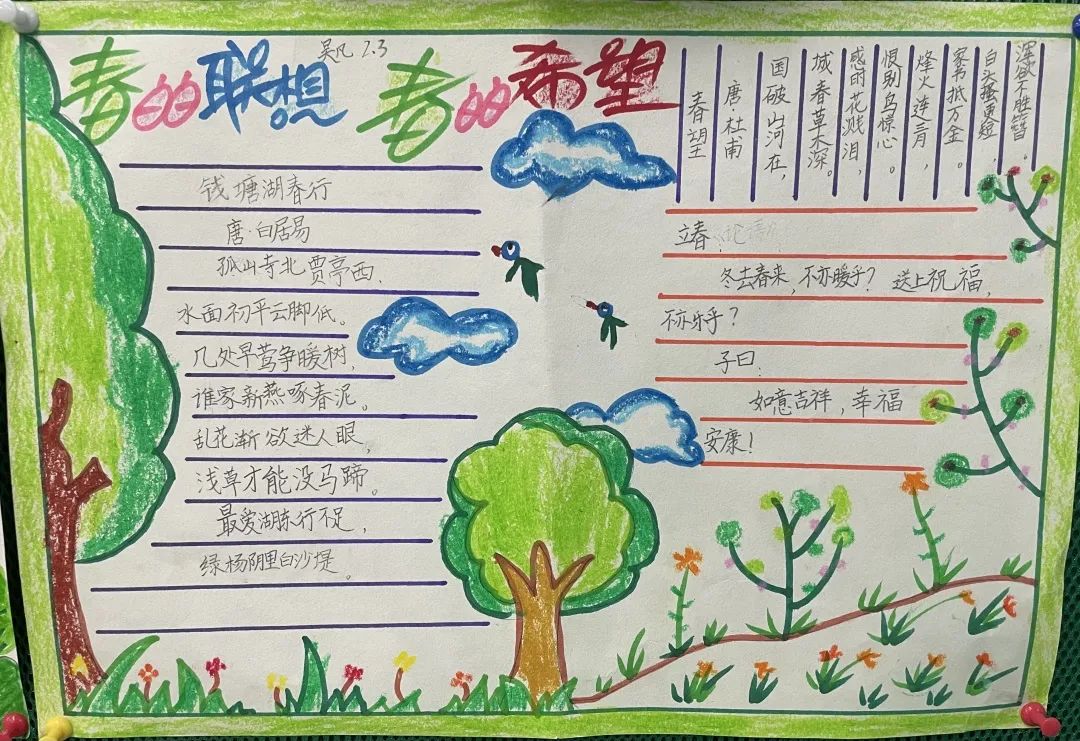 春的联想 吴凡 2.3 春的希望
钱塘湖春行
唐·白居易
孤山寺北贾亭西,
水面初平云脚低。
几处早莺争暖树,
谁家新燕啄春泥。
乱花渐欲迷人眼,
浅草才能没马蹄。
最爱湖东行不足,
绿杨阴里白沙堤。
春望
唐·杜甫
国破山河在,
城春草木深。
感时花溅泪,
恨别鸟惊心。
烽火连三月,
家书抵万金。
白头搔更短,
浑欲不胜簪。
立春
冬去春来,不亦暖乎? 送上祝福,
不亦乐乎?
子曰:
如意吉祥,幸福
安康!